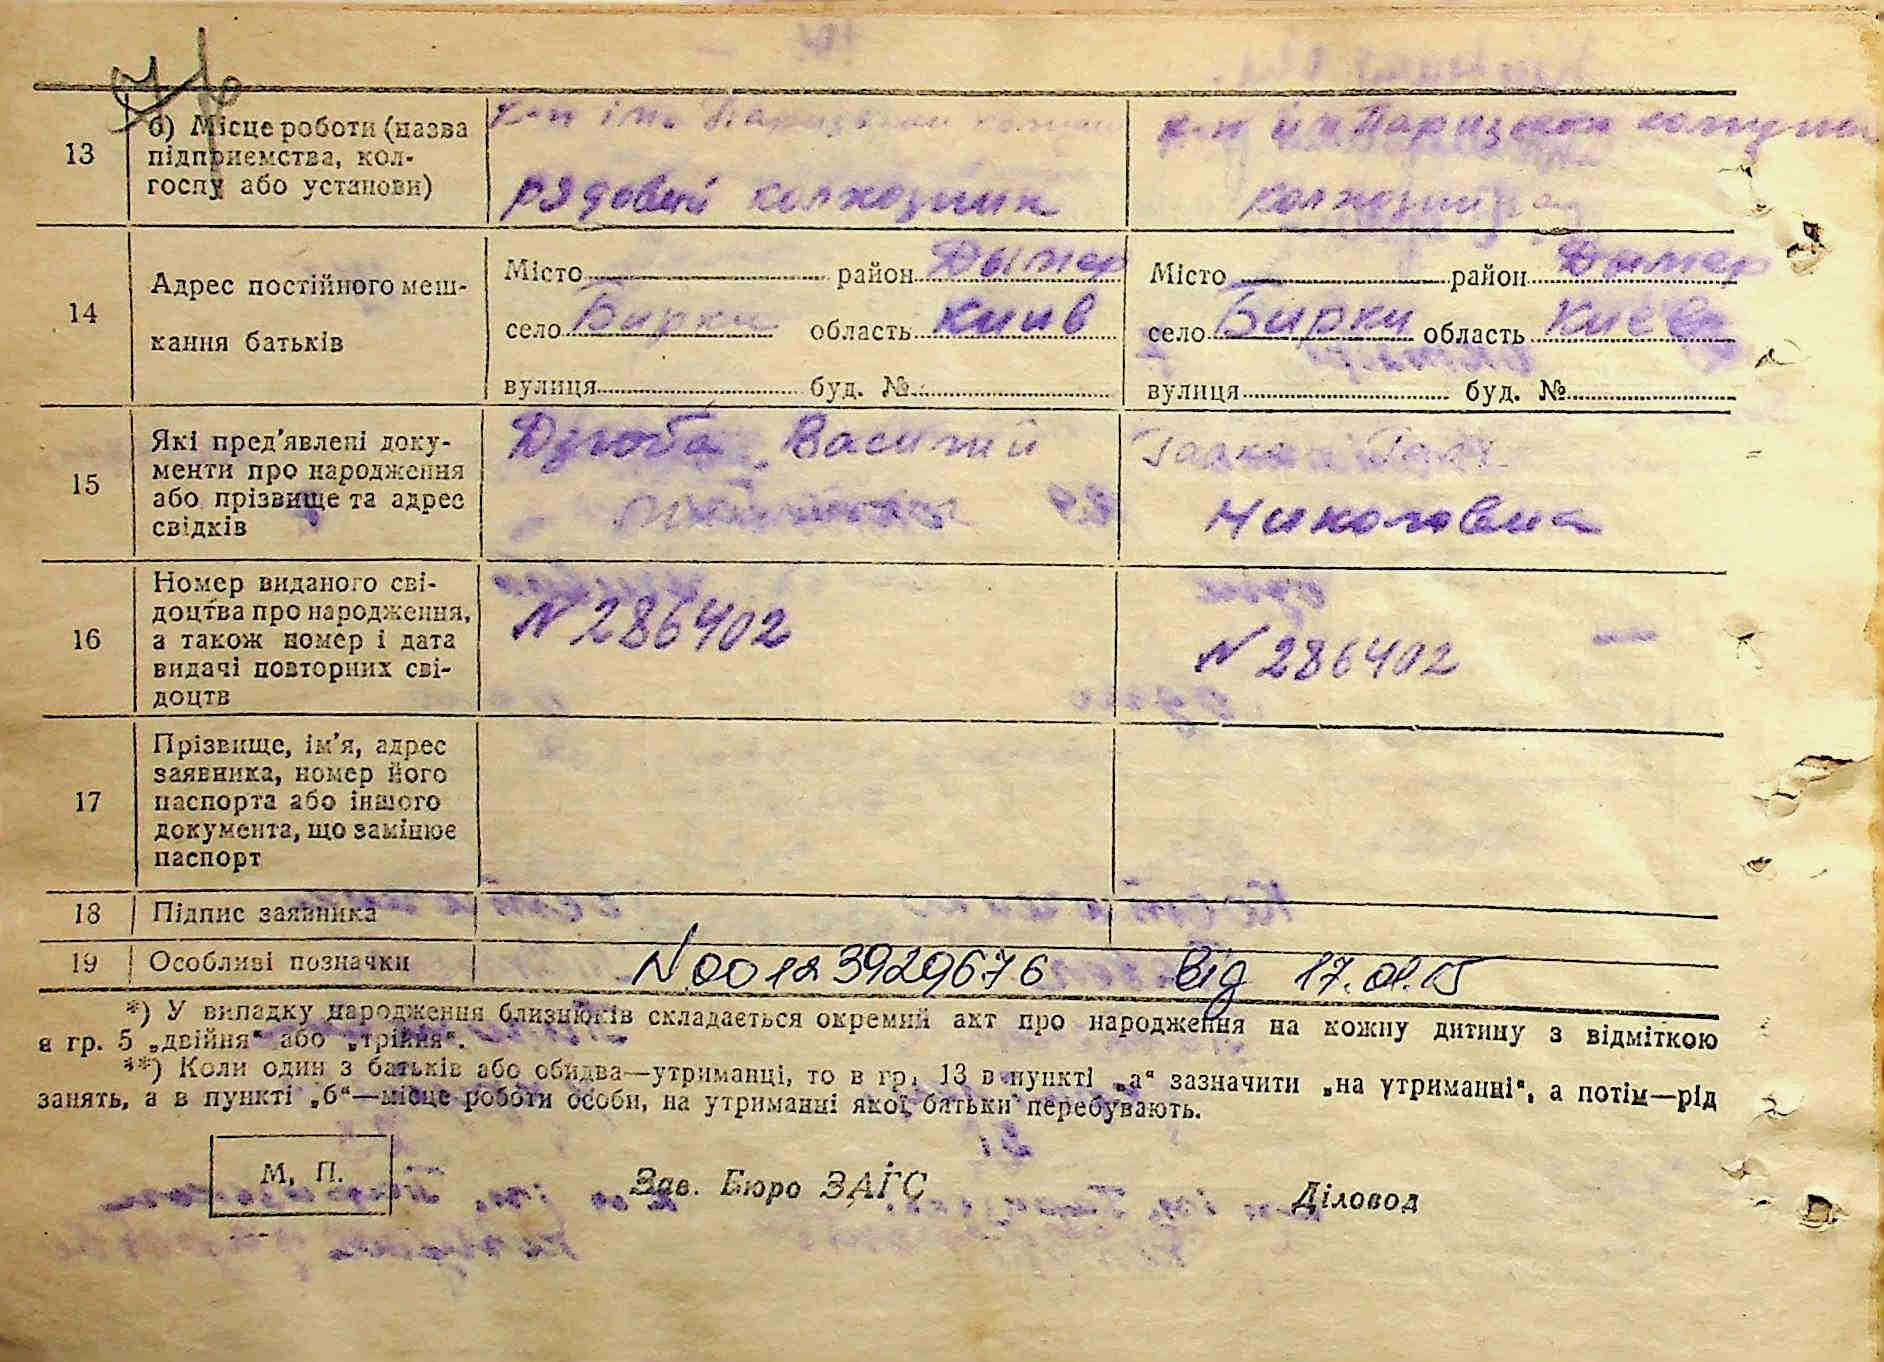 13
б) Місце роботи (назва
підприємства, кол-
госпу або установи)
к-п ім. Паризької
рядовий колхозник
к-п им Парижской комуны
14
Адрес постійного меш-
кання батьків
Місто район Дымер
село Бирки область Киів
вулиця буд. №
Місто район Дымер
село Бирки область Киев
вулиця буд. №
15
Які пред'явлені доку-
менти про народження
або прізвище та адрес
свідків
Дзюба Василий
Галка Галя
Николовна
16
Номер виданого сві-
доцтва про народження,
а також номер і дата
видачі повторних сві-
доцтв
N 286402
N 286402
17
Прізвище, ім'я, адрес
заявника, номер його
паспорта або іншого
документа, що замінює
паспорт
18
Підпис заявника
19
Особливі позначки
N 00123929676 від 17.01.15
*) У випадку народження близнюків складається окремий акт про народження на кожну дитину з відміткою
в гр. 5 „двійня“ або „трійня“.
**) Коли один з батьків або обидва—утриманці, то в гр. 13 в пункті „а“ зазначити „на утриманні“, а потім—рід
занять, а в пункті „б“—місце роботи особи, на утриманні якої батьки перебувають.
М. П.
Зав. Бюро ЗАГС
Діловод